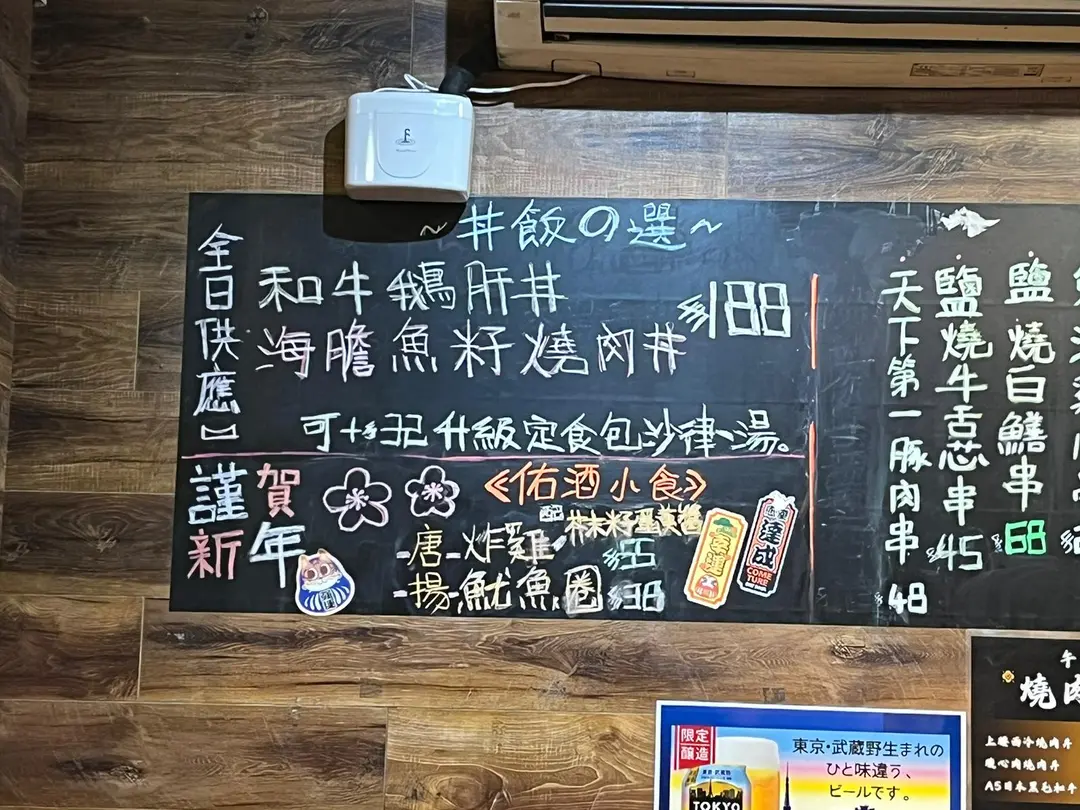 ~丼飯の選~
全日供應】
和牛鵝肝丼
海膽魚籽燒肉丼
$188
可+$32升級定食包沙律、湯。
謹賀
新年
《佑酒小食》
唐揚
-炸雞 配 籽蛋黃醬 $55
-魷魚圈 $38
達成
COME
TURE
天下第一豚肉串
$48
鹽燒牛舌芯串
$45
鹽燒白鱔串
$68
限定
醸造
東京・武蔵野生まれの
ひと味違う、
ビールです。
TOKYO
午
燒肉
上腰西冷燒肉丼
A5日本黑毛和牛